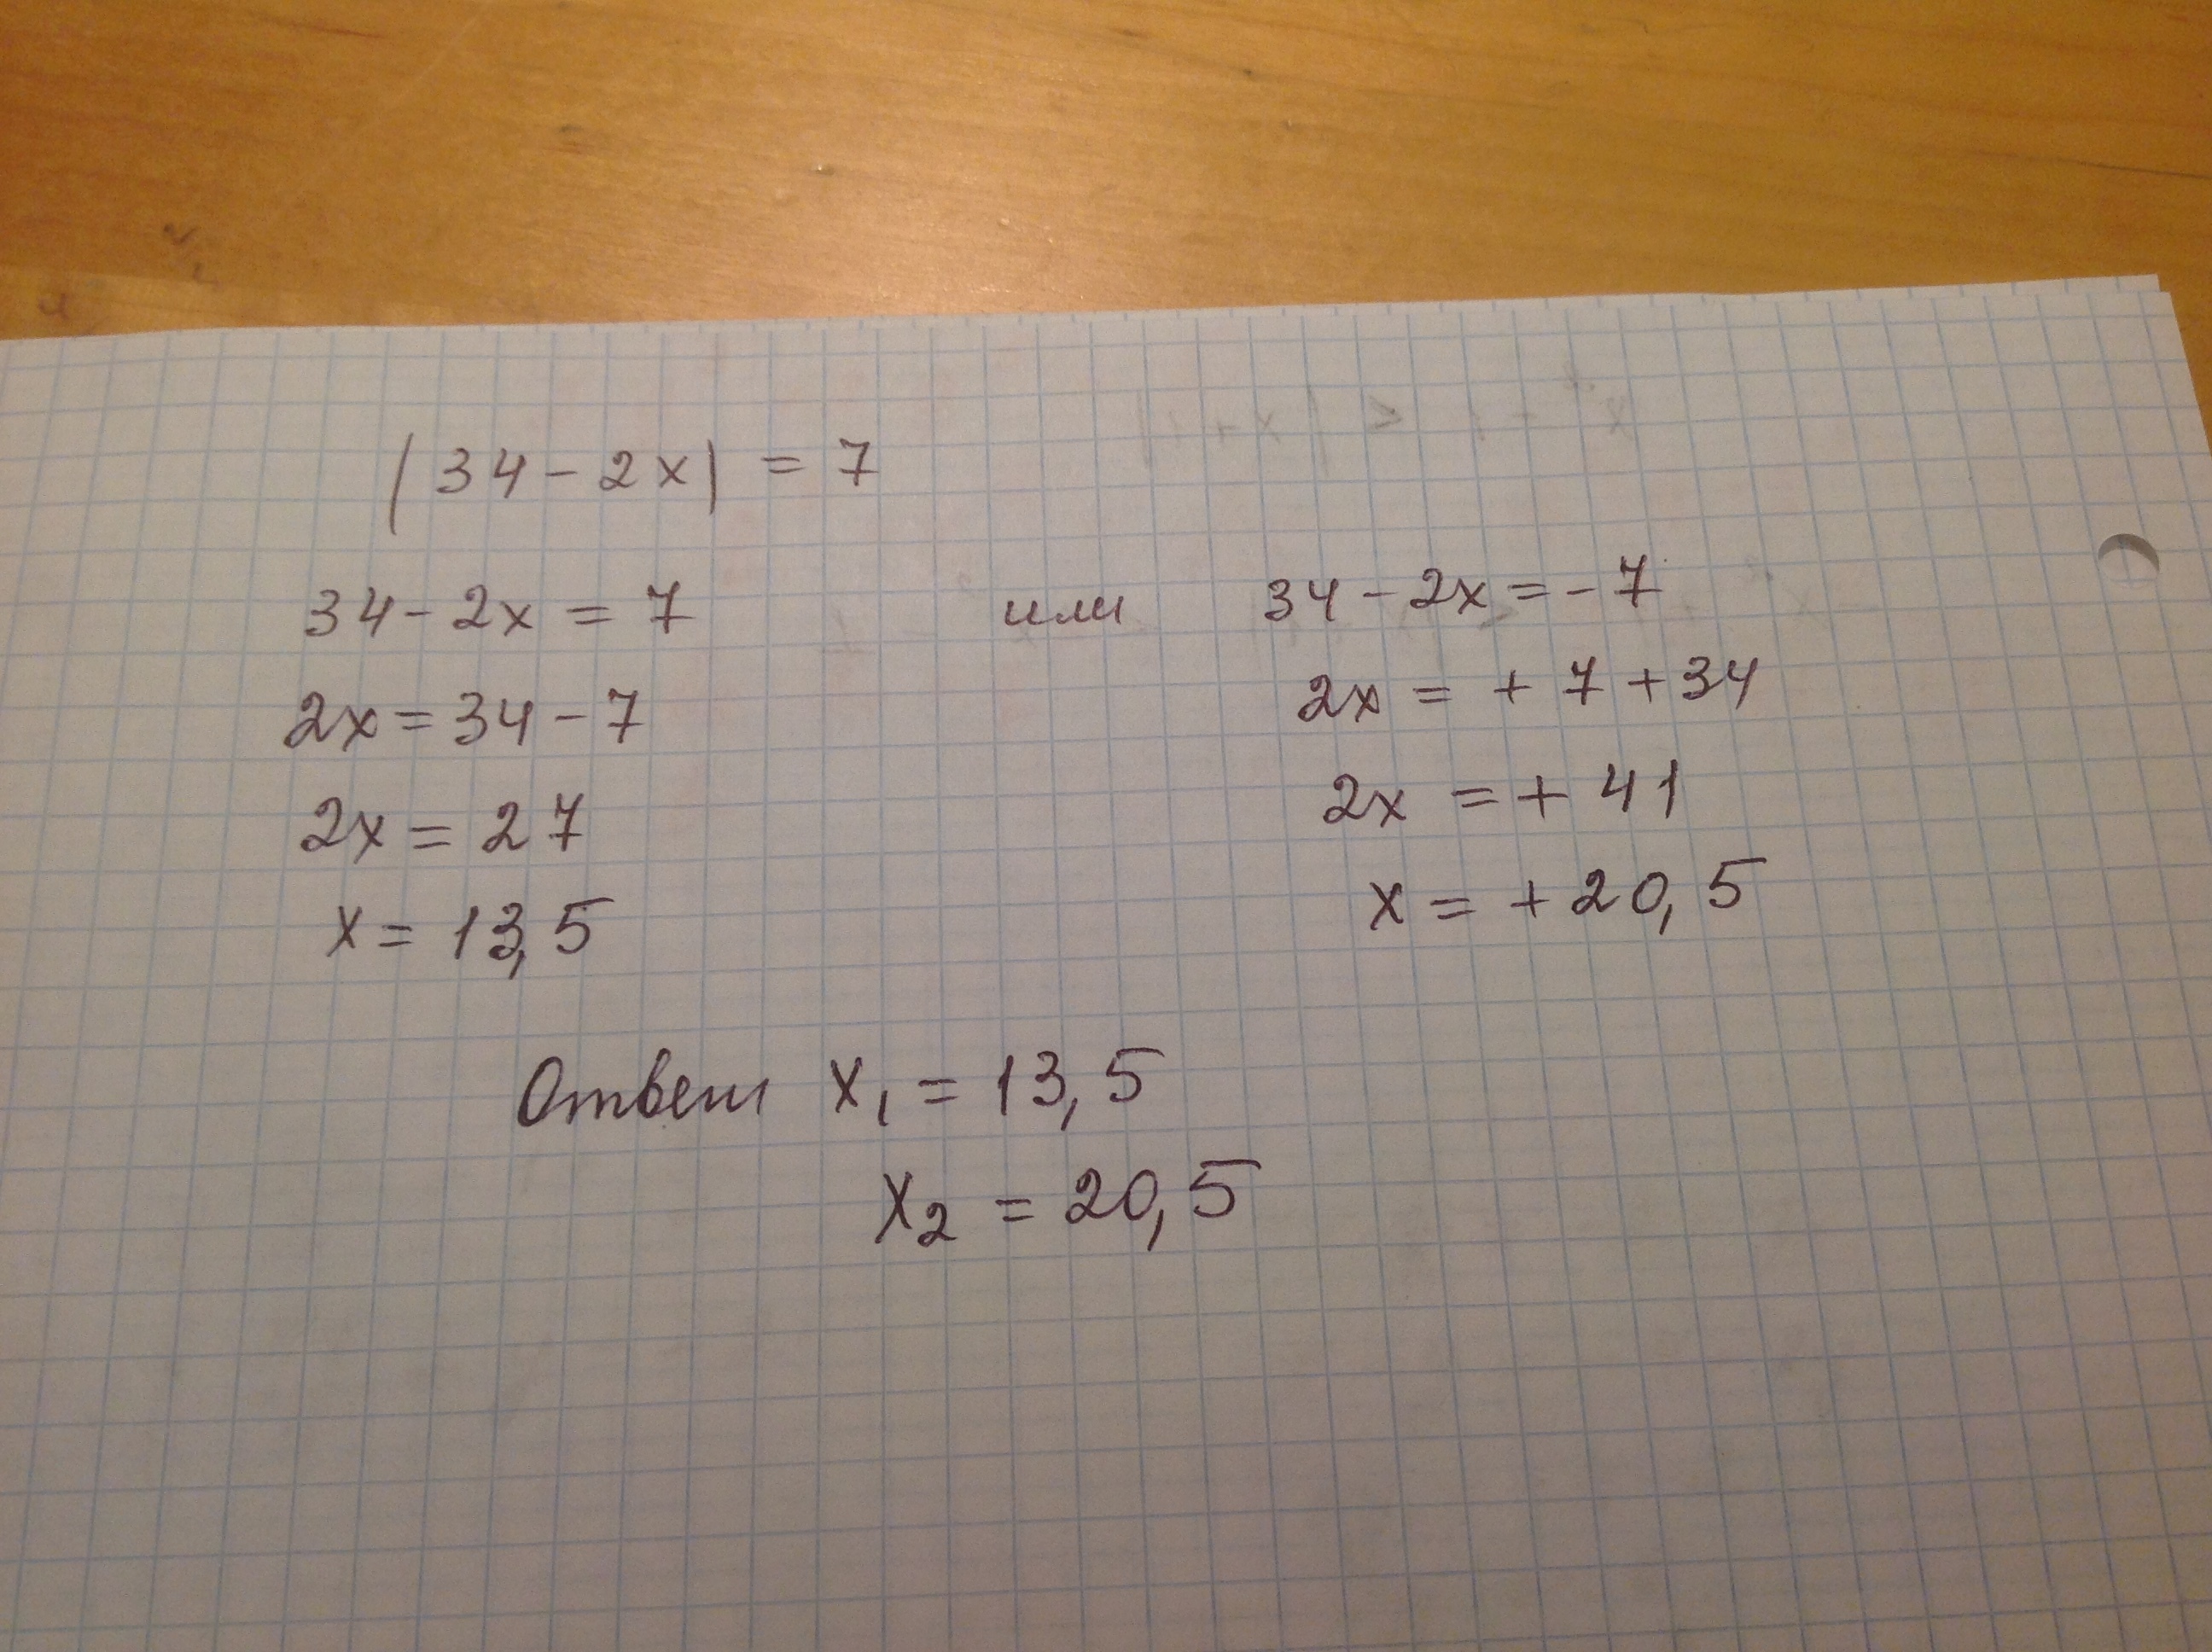 |34-2x| = 7
34-2x = 7 или 34-2x=-7
2x=34-7 2x = +7+34
2x=27 2x =+41
x=13,5 x=+20,5
Ответ x₁=13,5
x₂ = 20,5